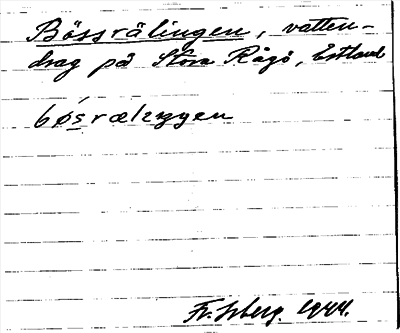 Bössrälingen, vatten-
drag på Stora Rågö, Estland
bǿsrælıŋen
1944.